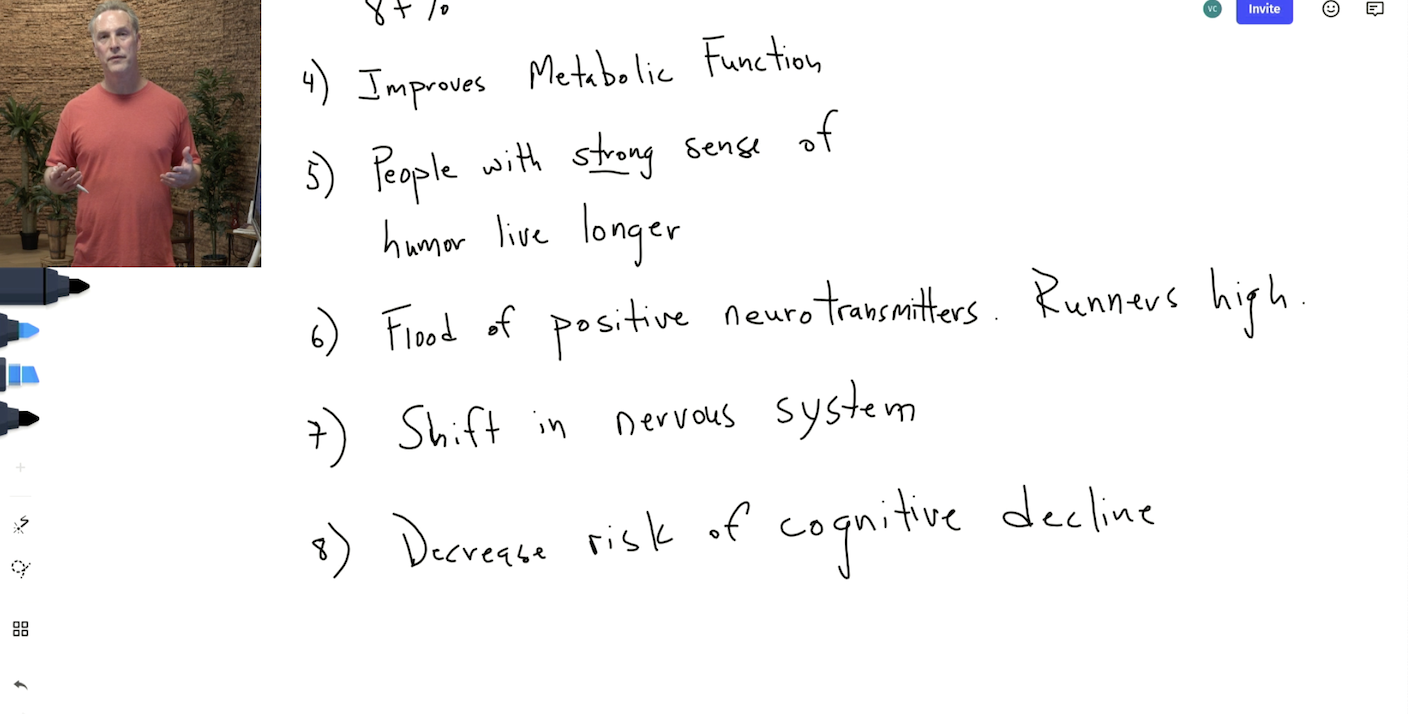 VC
Invite
4) Improves Metabolic Function
5) People with strong sense of
humor live longer
6) Flood of positive neurotransmitters. Runners high.
7) Shift in nervous system
8) Decrease risk of cognitive decline